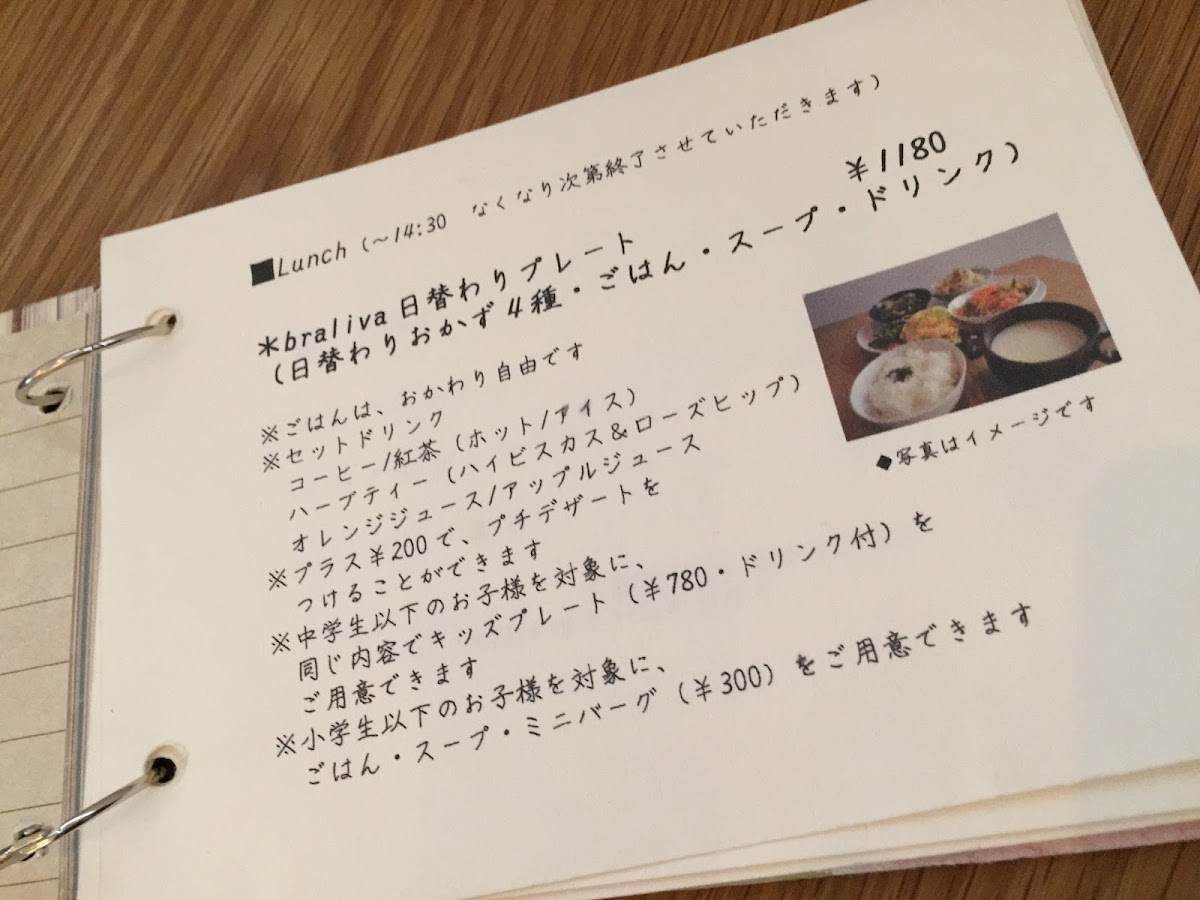 ■Lunch（～14:30　なくなり次第終了させていただきます）
＊braliva日替わりプレート　¥1180
（日替わりおかず4種・ごはん・スープ・ドリンク）
※ごはんは、おかわり自由です
※セットドリンク
コーヒー/紅茶（ホット/アイス）
ハーブティー（ハイビスカス＆ローズヒップ）
オレンジジュース/アップルジュース
※プラス¥200で、プチデザートを
つけることができます
※中学生以下のお子様を対象に、
同じ内容でキッズプレート（¥780・ドリンク付）を
ご用意できます
※小学生以下のお子様を対象に、
ごはん・スープ・ミニバーグ（¥300）をご用意できます
◆写真はイメージです